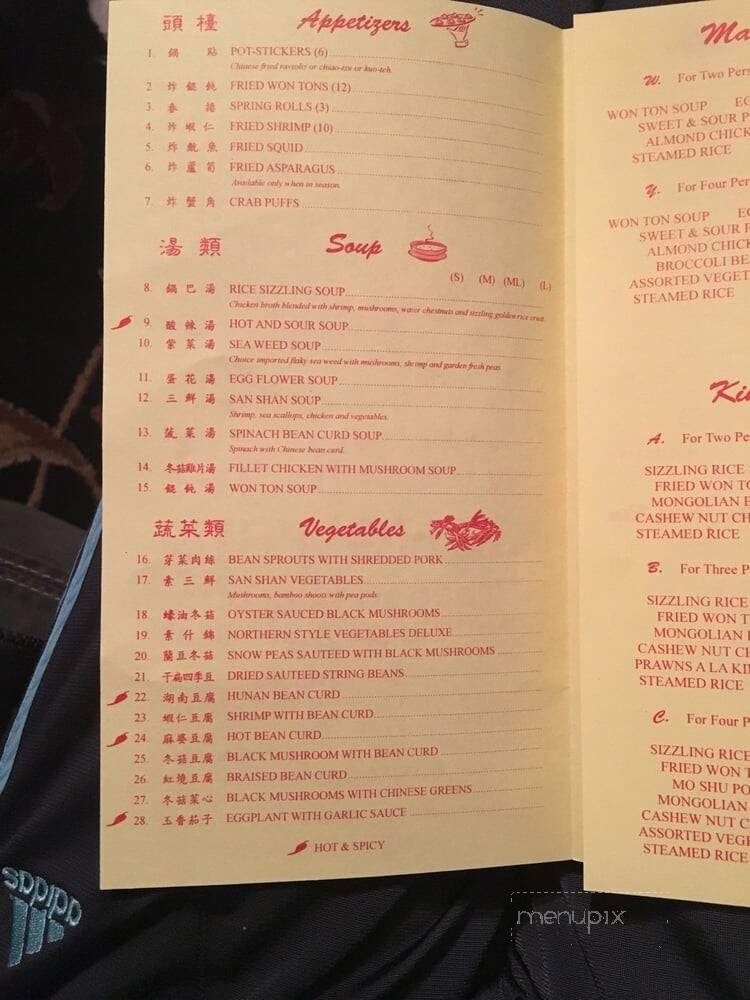 頭檯 Appetizers
1. 鍋貼 POT-STICKERS (6)
Chinese fried raviolis or chiao-tzu or kuo-teh.
2 炸餛飩 FRIED WON TONS (12)
3. 春捲 SPRING ROLLS (3)
4. 炸蝦仁 FRIED SHRIMP (10)
5. 炸魷魚 FRIED SQUID
6. 炸蘆筍 FRIED ASPARAGUS
Available only when in season.
7. 炸蟹角 CRAB PUFFS
湯類 Soup
(S) (M) (ML) (L)
8. 鍋巴湯 RICE SIZZLING SOUP
Chicken broth blended with shrimp, mushrooms, water chestnuts and sizzling golden rice crust.
9. 酸辣湯 HOT AND SOUR SOUP
10. 紫菜湯 SEA WEED SOUP
Choice imported flaky sea weed with mushrooms, shrimp and garden fresh peas.
11. 蛋花湯 EGG FLOWER SOUP
12. 三鮮湯 SAN SHAN SOUP
Shrimp, sea scallops, chicken and vegetables.
13. 菠菜湯 SPINACH BEAN CURD SOUP
Spinach with Chinese bean curd.
14. 冬菇雞片湯 FILLET CHICKEN WITH MUSHROOM SOUP
15. 餛飩湯 WON TON SOUP
蔬菜類 Vegetables
16. 芽菜肉絲 BEAN SPROUTS WITH SHREDDED PORK
17. 素三鮮 SAN SHAN VEGETABLES
Mushrooms, bamboo shoots with pea pods.
18. 蠔油冬菇 OYSTER SAUCED BLACK MUSHROOMS
19. 素什錦 NORTHERN STYLE VEGETABLES DELUXE
20. 蘭豆冬菇 SNOW PEAS SAUTEED WITH BLACK MUSHROOMS
21. 干扁四季豆 DRIED SAUTEED STRING BEANS
22. 湖南豆腐 HUNAN BEAN CURD
23. 蝦仁豆腐 SHRIMP WITH BEAN CURD
24. 麻婆豆腐 HOT BEAN CURD
25 冬菇豆腐 BLACK MUSHROOM WITH BEAN CURD
26. 紅燒豆腐 BRAISED BEAN CURD
27. 冬菇菜心 BLACK MUSHROOMS WITH CHINESE GREENS
28. 玉香茄子 EGGPLANT WITH GARLIC SAUCE
HOT & SPICY
Ma
W. For Two Pers
WON TON SOUP EG
SWEET & SOUR P
ALMOND CHICK
STEAMED RICE
Y. For Four Per
WON TON SOUP EG
SWEET & SOUR P
ALMOND CHICK
BROCCOLI BE
ASSORTED VEGET
STEAMED RICE
Kin
A. For Two Pe
SIZZLING RICE
FRIED WON TO
MONGOLIAN B
CASHEW NUT CH
STEAMED RICE
B. For Three P
SIZZLING RICE
FRIED WON T
MONGOLIAN
CASHEW NUT CH
PRAWNS A LA KIN
STEAMED RICE
C. For Four P
SIZZLING RICE
FRIED WON T
MO SHU PO
MONGOLIAN
CASHEW NUT C
ASSORTED VEGE
STEAMED RICE
adidas
menupix